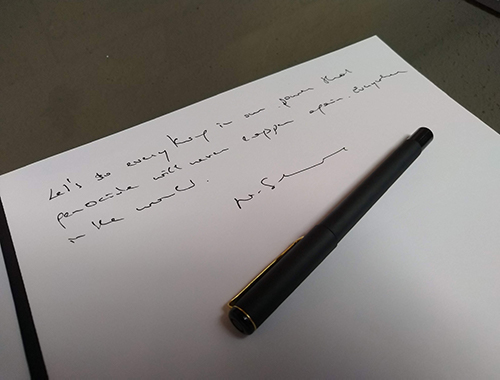 Let's do everything in our power that
genocide will never happen again everywhere
in the world.
N. S